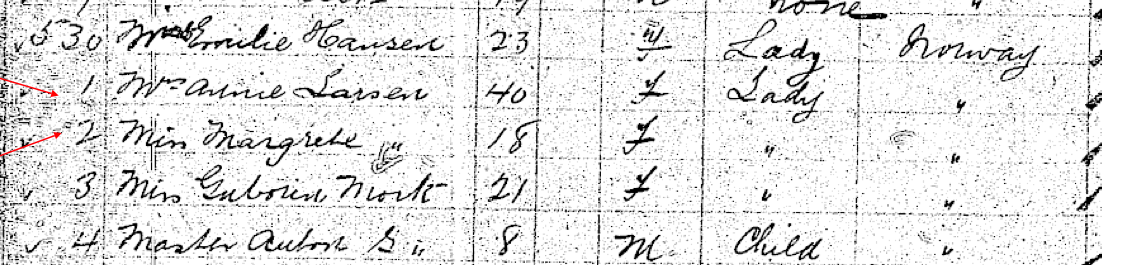 none "
530 Miss Emilie Hansen 23 F Lady Norway
1 Mrs Annie Larsen 40 F Lady "
2 Miss Margrete " 18 F " "
3 Miss Mork 21 F " "
4 Master G " 8 M Child "